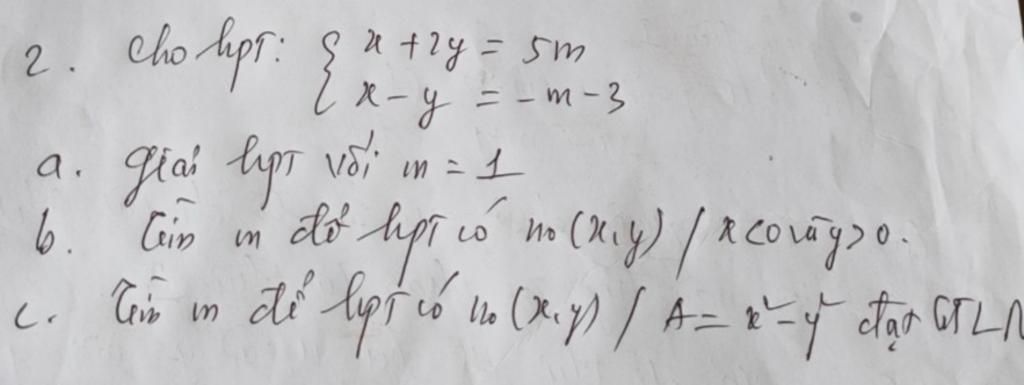 2. Cho hpT: { x + 2y = 5m
x - y = - m - 3
a. giải hpT với m = 1
b. Tìm m để hpT có no (x,y) / x<0 và y>0.
c. Tìm m để hpT có no (x,y) / A = x² - y² đạt GTLN